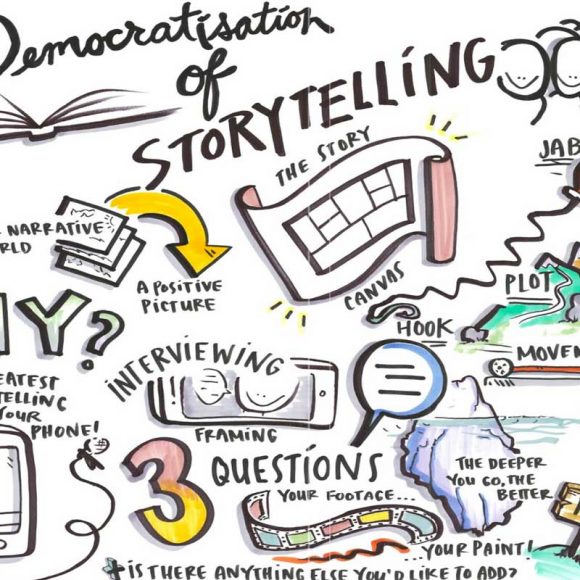 Democratisation
of
STORYTELLING
THE STORY
JAB
NARRATIVE
RLD
A POSITIVE
PICTURE
CANVAS
PLOT
HOOK
HY?
MOVEM
INTERVIEWING
EATEST
TELLING
YOUR
PHONE!
FRAMING
3 QUESTIONS
THE DEEPER
YOU GO, THE
BETTER
YOUR FOOTAGE...
...YOUR PAINT!
+ IS THERE ANYTHING ELSE YOU'D LIKE TO ADD?